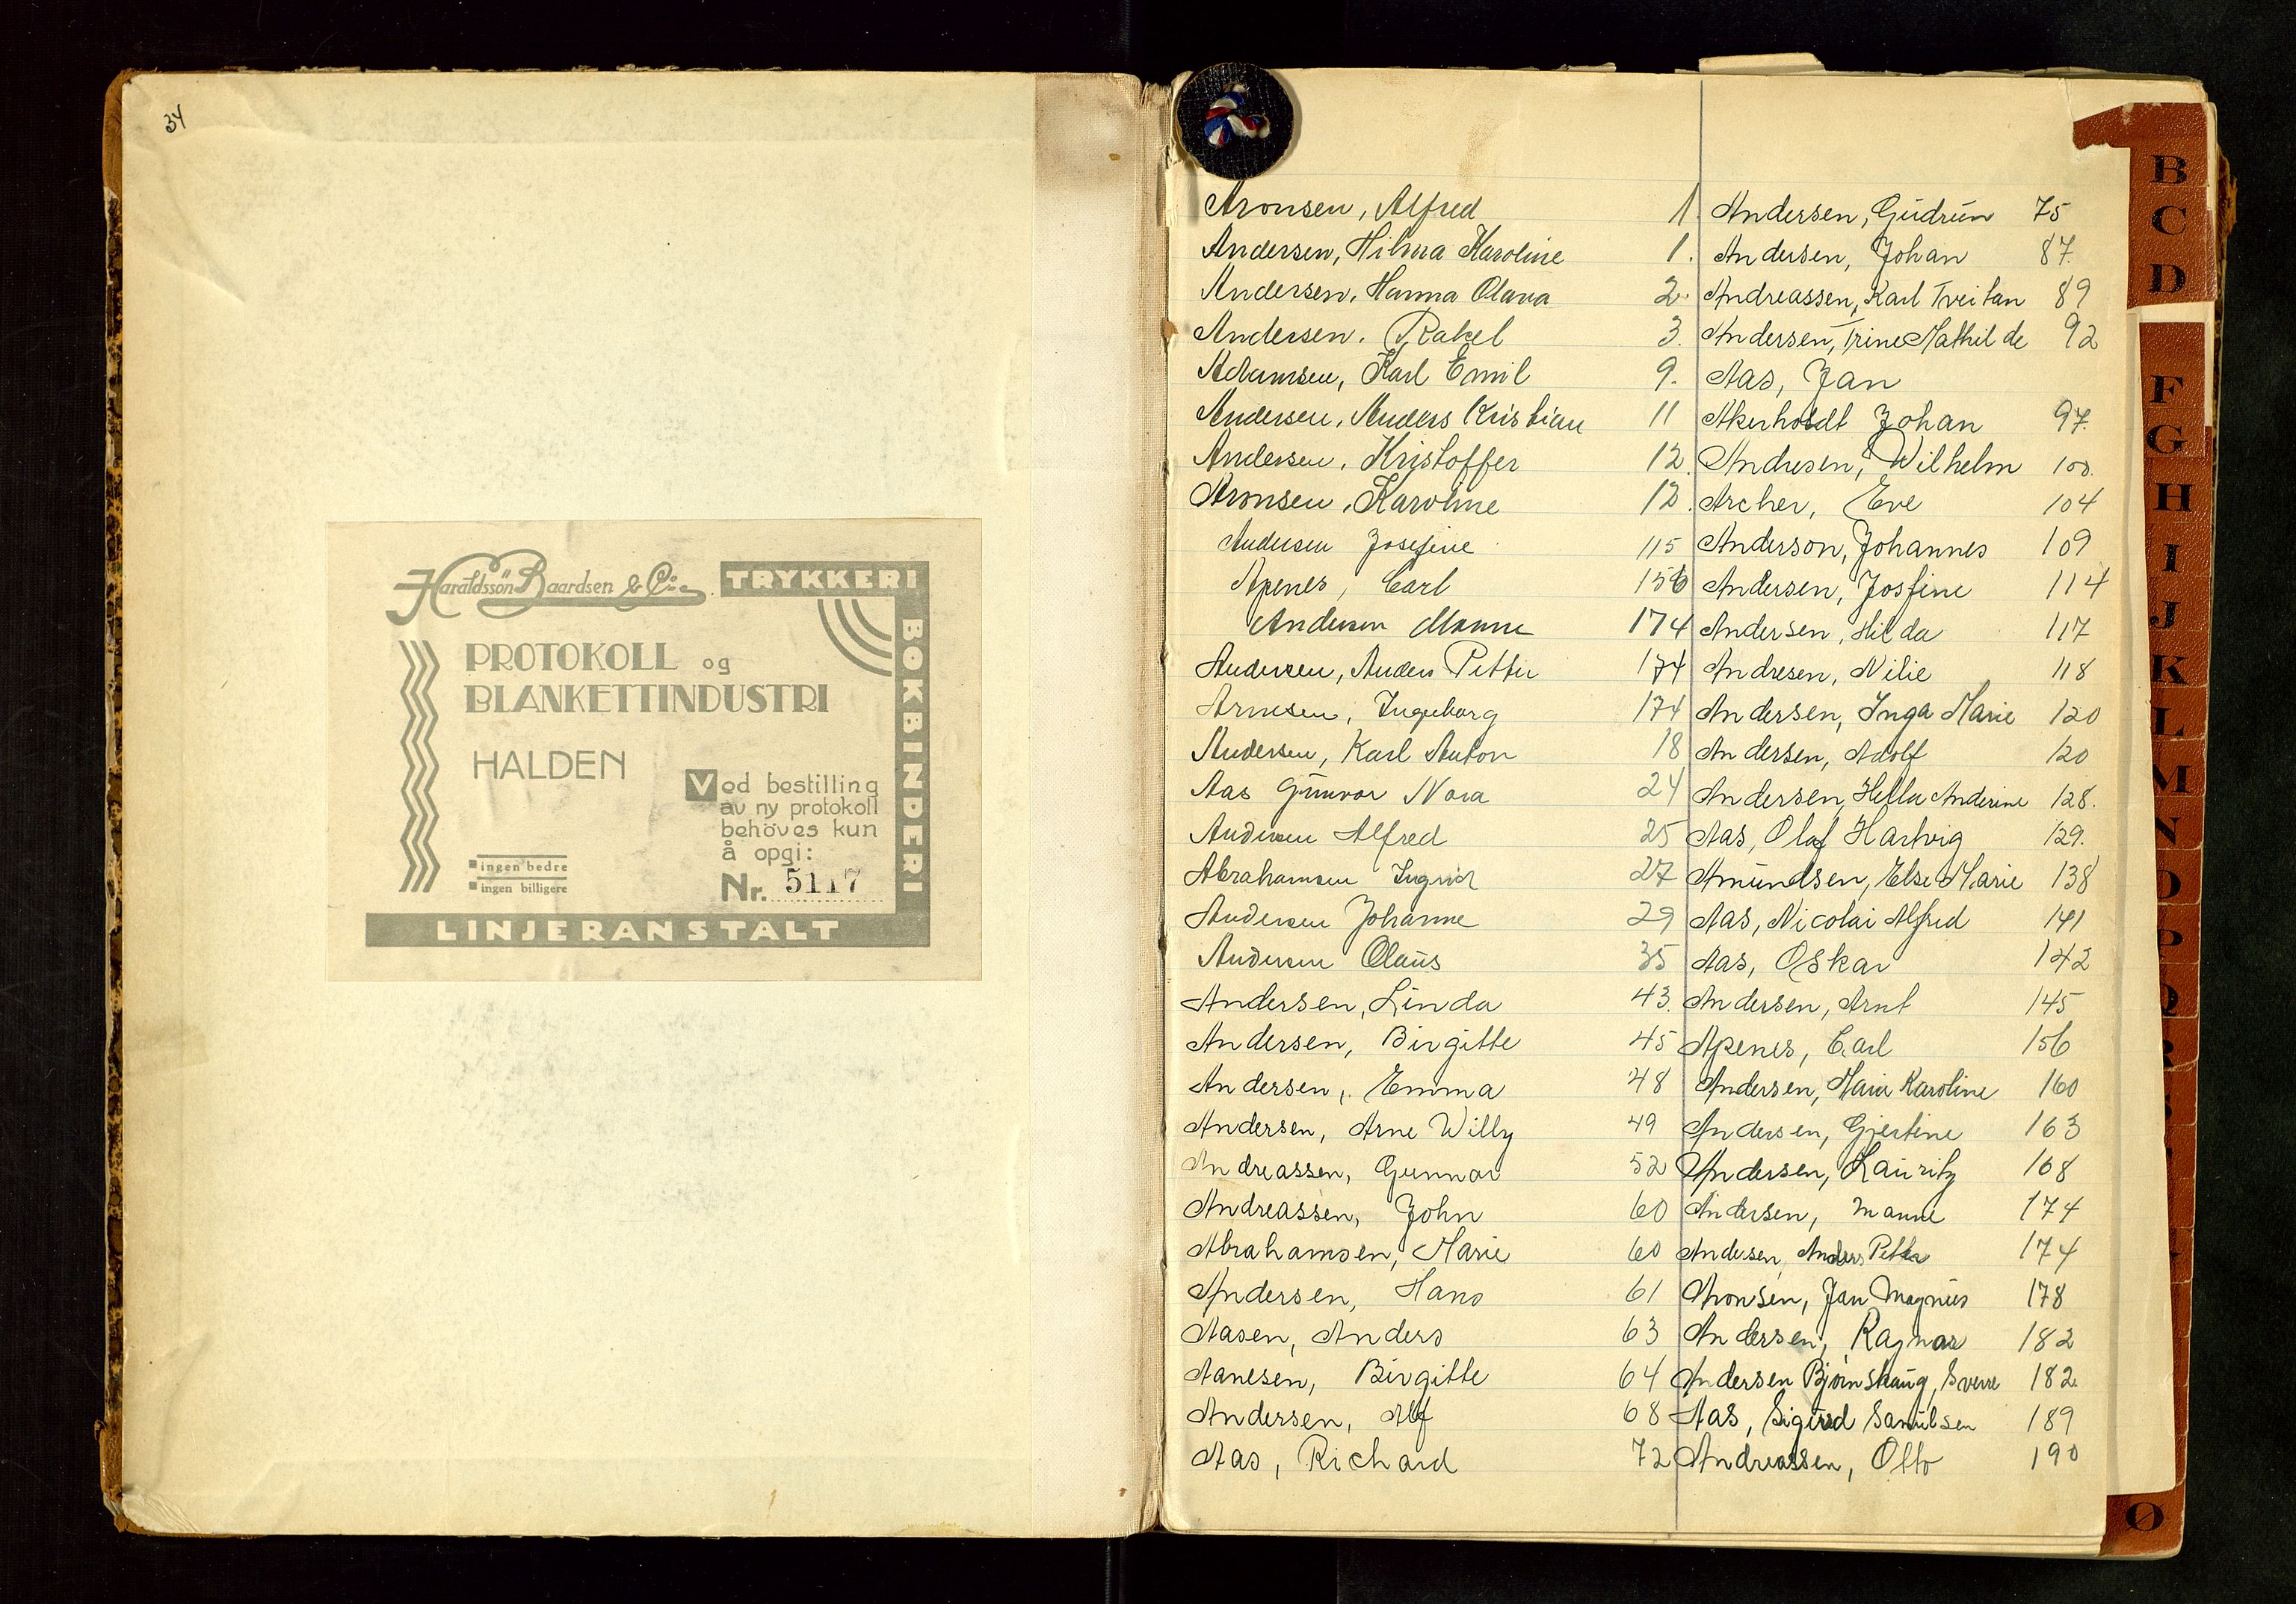 34
Haraldssön Baardsen & Co. TRYKKERI
BOKBINDERI
PROTOKOLL og
BLANKETTINDUSTRI
HALDEN
Ved bestilling
av ny protokoll
behöves kun
å opgi:
Nr. 5117
ingen bedre
ingen billigere
LINJERANSTALT
Aronsen, Alfred 1.
Andersen, Hilma Karoline 1.
Andersen, Hanna Olava 2.
Andersen, Rakel 3.
Adamsen, Karl Emil 9.
Andersen, Anders Kristian 11
Andersen, Kristoffer 12.
Aronsen, Karoline 12.
Andersen Josefine 115
Apenes, Carl 156
Andersen Manne 174
Andersen, Anders Petter 174
Arnesen, Ingeborg 174
Andersen, Karl Anton 18
Aas Gunvor Nora 24
Andersen Alfred 25
Abrahamsen Ingrid 27
Andersen Johanne 29
Andersen Olaus 35
Andersen, Linda 43.
Andersen, Birgitte 45
Andersen, Emma 48
Andersen, Arne Willy 49
Andreassen, Gunnar 52
Andreassen, John 60
Abrahamsen, Marie 60
Andersen, Hans 61
Aasen, Anders 63
Aanesen, Birgitte 64
Andersen, Alf 68
Aas, Richard 72
Andersen, Gudrun 75
Andersen, Johan 87.
Andreassen, Karl Tveitan 89
Andersen, Trine Mathilde 92
Aas, Jan
Akerholdt Johan 97.
Andresen, Wilhelm 100.
Archer, Eve 104
Anderson, Johannes 109
Andersen, Josfine 114
Andersen, Hilda 117
Andresen, Nilie 118
Andersen, Inga Marie 120
Andersen, Adolf 120
Andersen, Hella Anderine 128.
Aas, Olaf Hartvig 129.
Amundsen, Else Marie 138
Aas, Nicolai Alfred 141
Aas, Oskar 142
Andersen, Arnt 145
Apenes, Carl 156
Andersen, Maria Karoline 160
Andersen, Gjertine 163
Andersen, Lauritz 168
Andersen, Manne 174
Andersen, Anders Petter 174
Aronsen, Jan Magnus 178
Andersen, Ragnar 182
Andersen Bjørnskaug, Sverre 182.
Aas, Sigurd Samulsen 189
Andreassen, Otto 190
B
C
D
F
G
H
I
J
K
L
M
N
O
P
Q
R
Ø